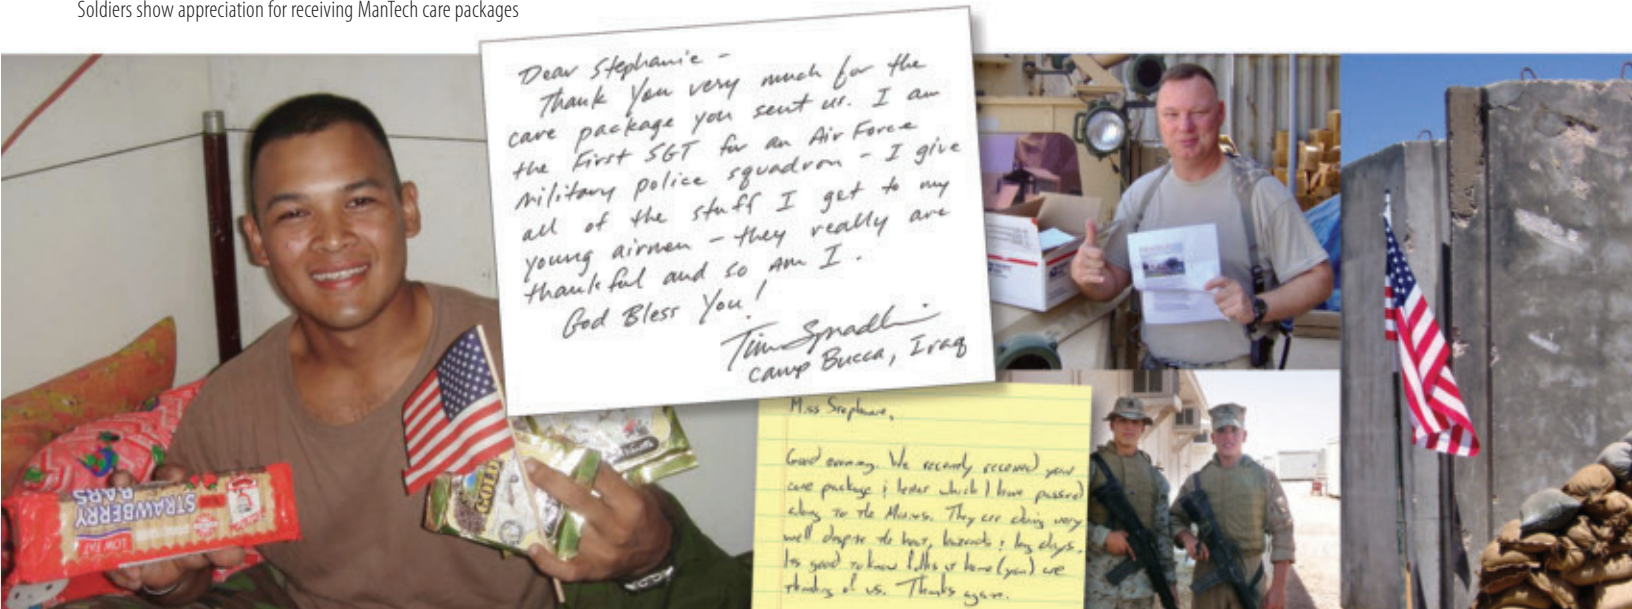 Soldiers show appreciation for receiving ManTech care packages
Dear Stephanie -
Thank you very much for the
care package you sent us. I am
the First SGT for an Air Force
military police squadron - I give
all of the stuff I get to my
young airmen - they really are
thankful and so am I.
God Bless You!
Tim Spradlin
Camp Bucca, Iraq
STRAWBERRY
BARS
LOW FAT
GOLD
Miss Stephanie,
Good evening. We recently received your
care package & letter which I have passed
along to the Marines. They are doing very
well despite the heat, hazards & long days.
Its good to know folks at home (you) are
thinking of us. Thanks again.